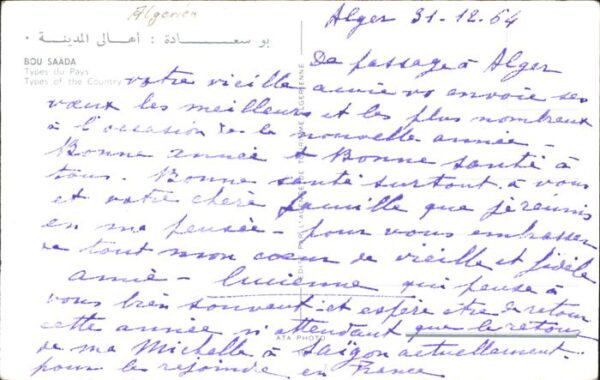 Algerien
Alger 31-12-64
بو سعادة : أهالي المدينة .
BOU SAADA
Types du Pays
Types of the Country
De passage à Alger
votre vieille amie vs envoie ses
vœux les meilleurs et les plus nombreux
à l'occasion de la nouvelle année -
Bonne année & Bonne santé à
tous. Bonne santé surtout à vous
et votre chère famille que je réunis
en ma pensée - pour vous embrasser
de tout mon cœur de vieille et fidèle
amie - Lucienne qui pense à
vous bien souvent et espère etre de retour
cette année n'attendant que le retour
de ma Michelle à Saïgon actuellement.
pour la rejoindre en France
ATA PHOTO